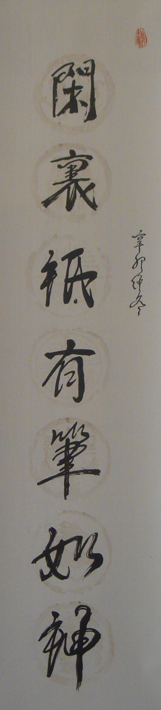 辛卯仲冬
閑裏祇有筆如神